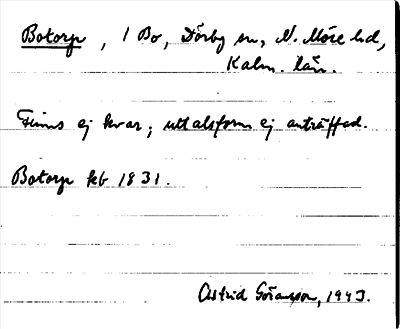 Botorp, 1 Bo, Dörby sn, N. Möre hd,
Kalm. län.
Finns ej kvar; uttalsform ej anträffad.
Botorp kb 1831.
Astrid Göransson, 1943.